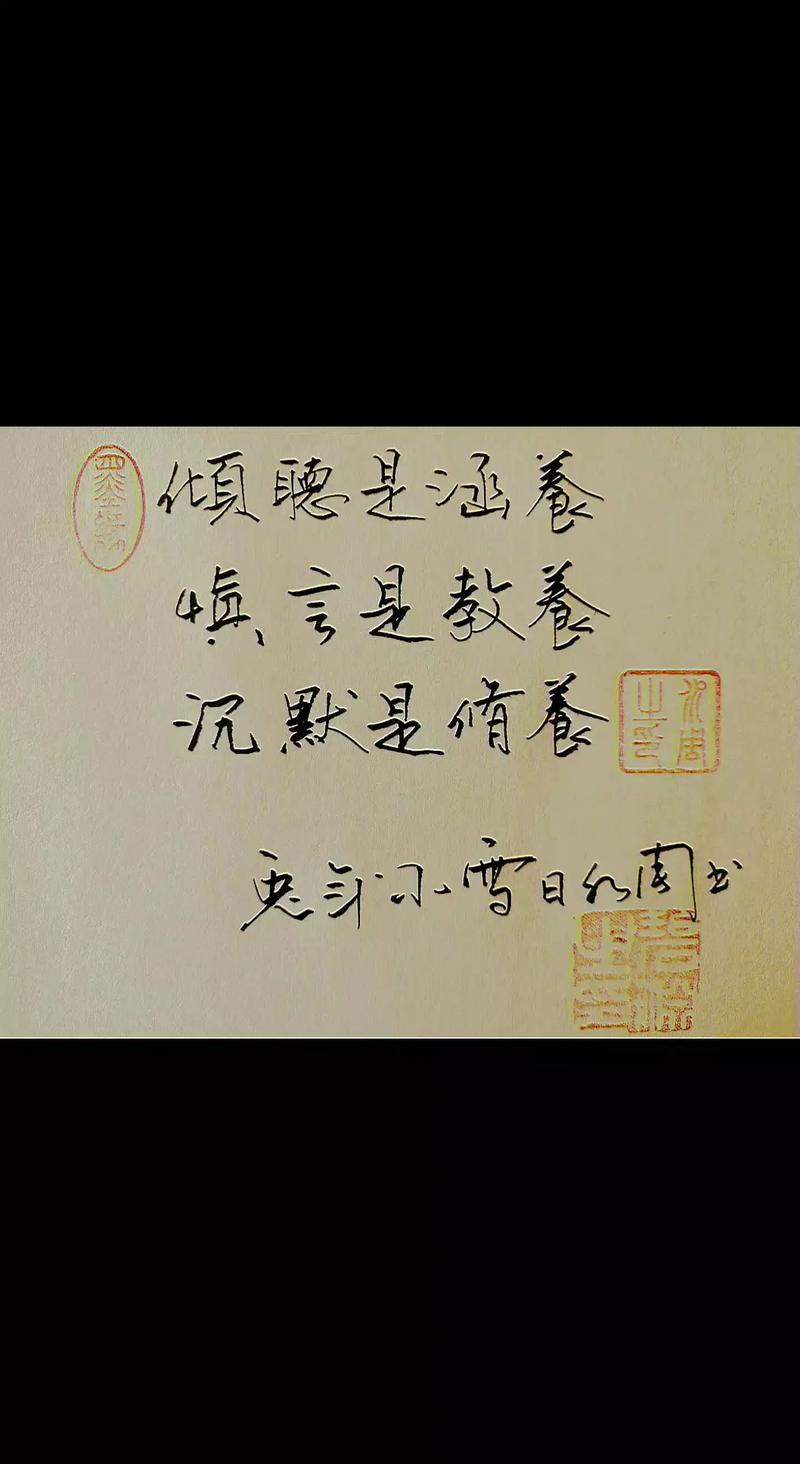 傾聽是涵養
慎言是教養
沉默是脩養
兎年小雪日永周书